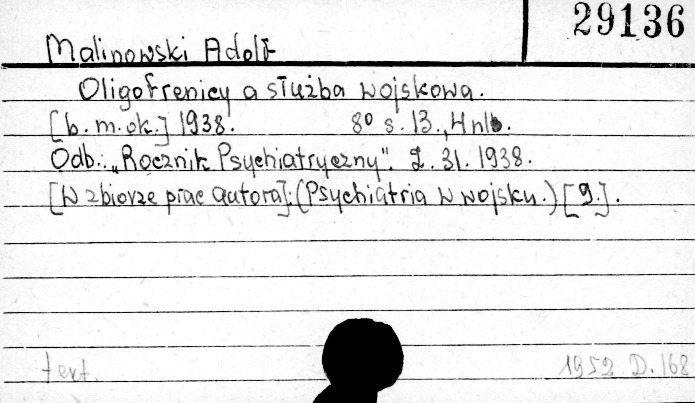 29136
Malinowski Adolf
Oligofrenicy a służba wojskowa.
[b. m. ok.] 1938. 8° s. 13., 4 nlb.
Odb.: „Rocznik Psychiatryczny". Z. 31. 1938.
[W zbiorze prac autora]: (Psychiatria w wojsku.) [9.].
text.
1952 D. 168